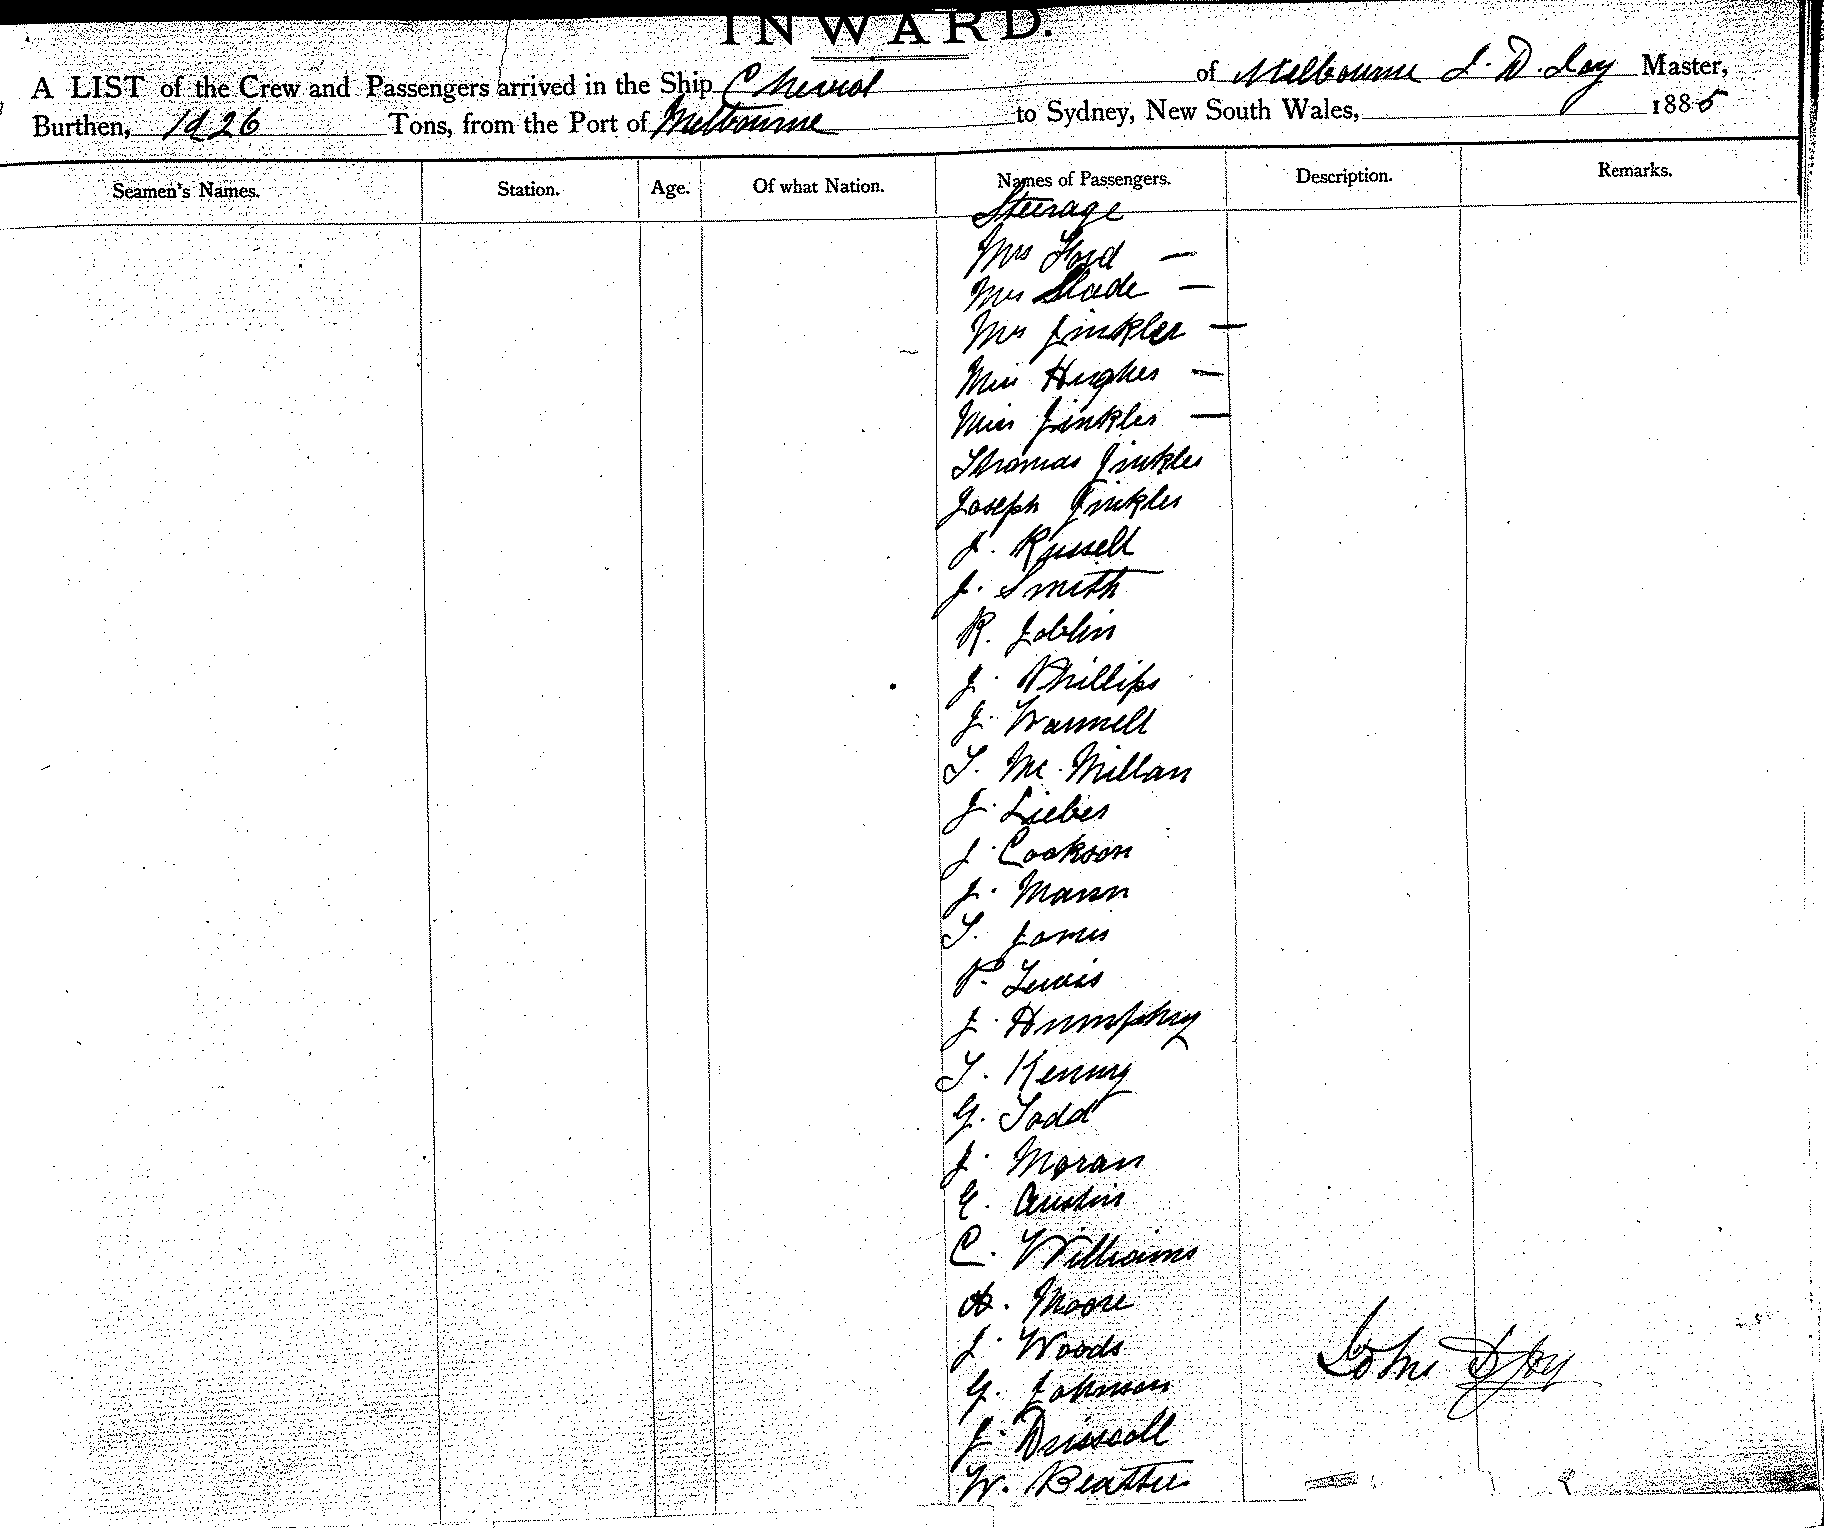 INWARD.
A LIST of the Crew and Passengers arrived in the Ship Cheviot of Melbourne J. D. Joy Master,
Burthen, 1226 Tons, from the Port of Melbourne to Sydney, New South Wales, 1885
Seamen's Names. Station. Age. Of what Nation. Names of Passengers. Description. Remarks.
Steerage
Mrs Ford —
Mrs Slade —
Mrs Jinkler —
Miss Hughes —
Miss Jinkler —
Thomas Jinkler
Joseph Jinkler
J. Russell
J. Smith
R. Joblin
J. Phillips
J. Wannell
T. McMillan
J. Lieber
J. Cookson
J. Mann
T. James
P. Lewis
J. Humphrey
T. Kenny
G. Todd
J. Moran
E. Austin
C. Williams
A. Moore
J. Woods
John D Joy
G. Johnson
J. Driscoll
W. Beattie